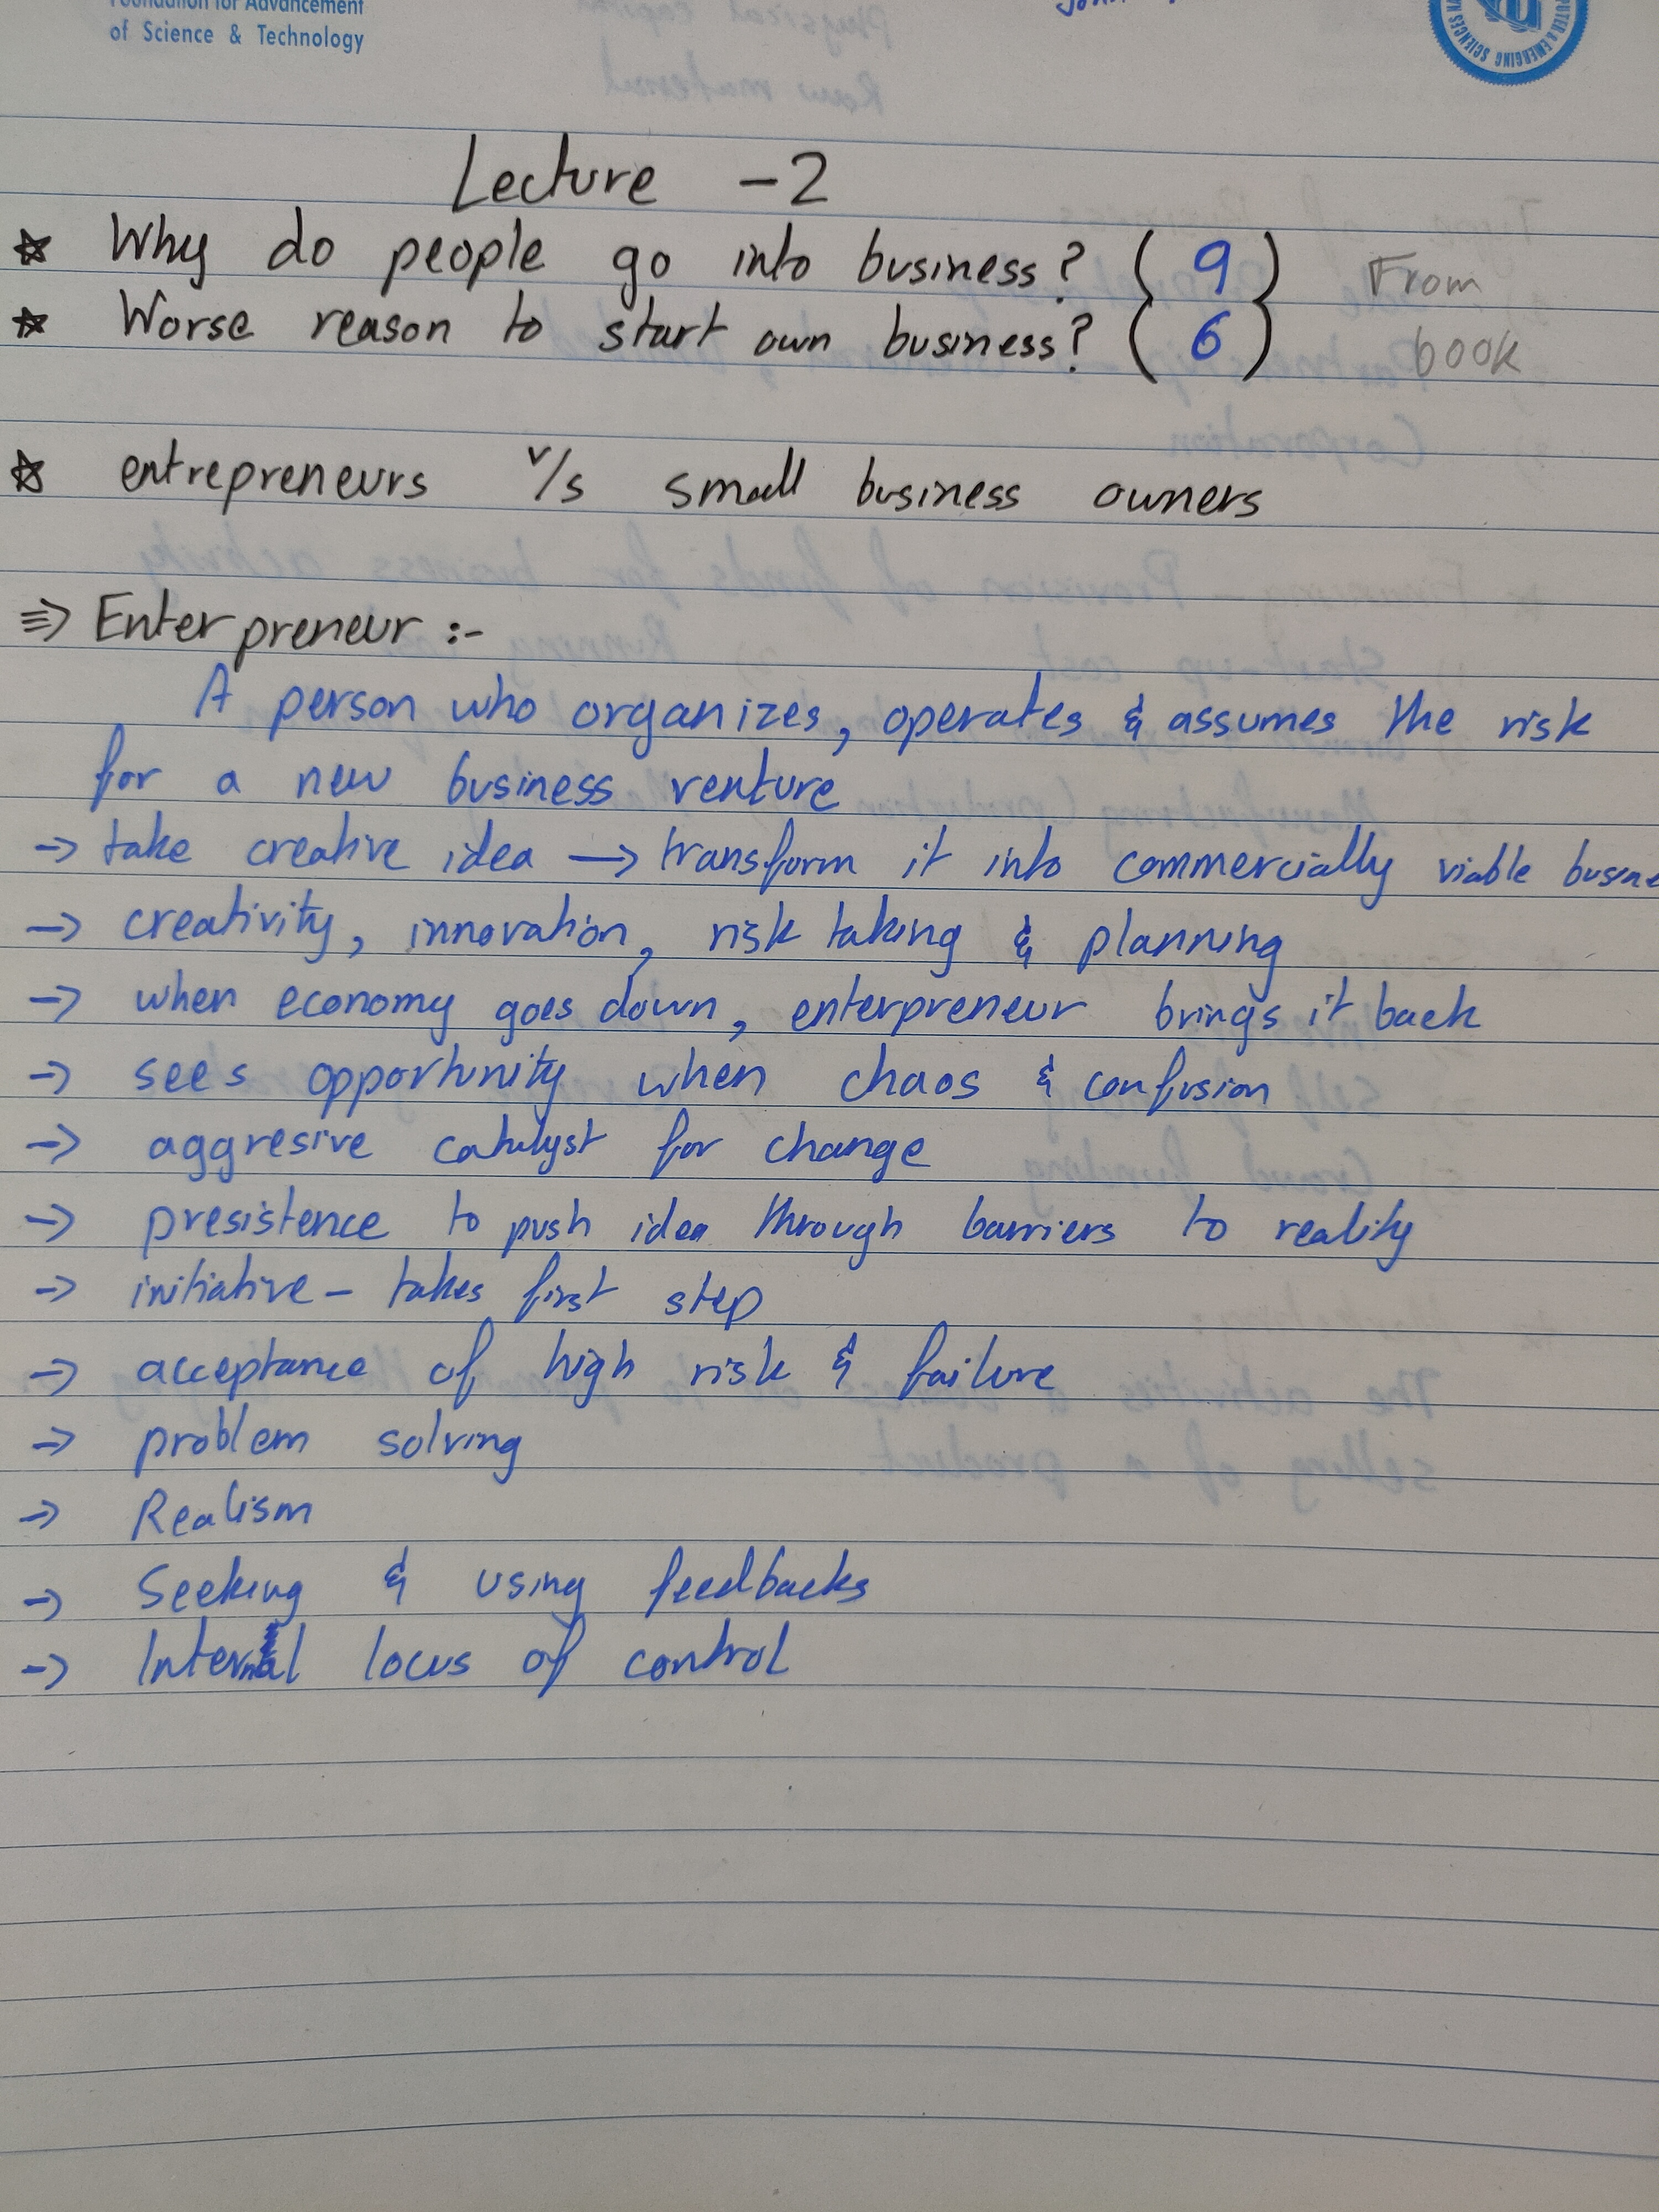 Foundation for Advancement
of Science & Technology
Lecture - 2
Why do people go into business? (9)
From
Worse reason to start own business? (6)
book
entrepreneurs v/s small business owners
⇒ Enterpreneur :-
A person who organizes, operates & assumes the risk
for a new business venture
→ take creative idea → transform it into commercially viable busine
→ creativity, innovation, risk taking & planning
→ when economy goes down, enterpreneur brings it back
→ sees opportunity when chaos & confusion
→ aggresive catalyst for change
→ presistence to push idea through barriers to reality
→ initiative - takes first step
→ acceptance of high risk & failure
→ problem solving
→ Realism
→ Seeking & using feedbacks
→ Internal locus of control